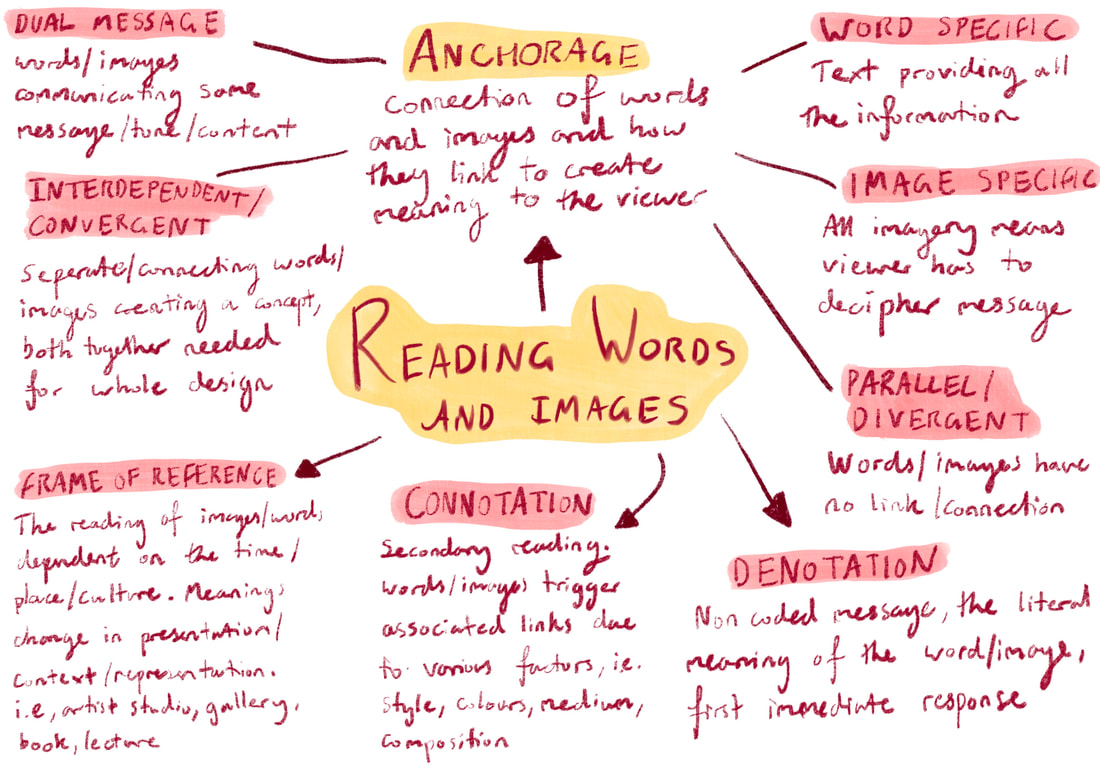 DUAL MESSAGE
words/images
communicating same
message/tone/content
INTERDEPENDENT/
CONVERGENT
Seperate/connecting words/
images creating a concept,
both together needed
for whole design
ANCHORAGE
connection of words
and images and how
they link to create
meaning to the viewer
WORD SPECIFIC
Text providing all
the information
IMAGE SPECIFIC
All imagery means
viewer has to
decipher message
PARALLEL/
DIVERGENT
Words/images have
no link/connection
READING WORDS
AND IMAGES
FRAME OF REFERENCE
The reading of images/words
dependent on the time/
place/culture. Meanings
change in presentation/
context/representation.
i.e, artist studio, gallery,
book, lecture
CONNOTATION
Secondary reading.
words/images trigger
associated links due
to various factors, ie.
style, colours, medium,
composition
DENOTATION
Non coded message, the literal
meaning of the word/image,
first immediate response